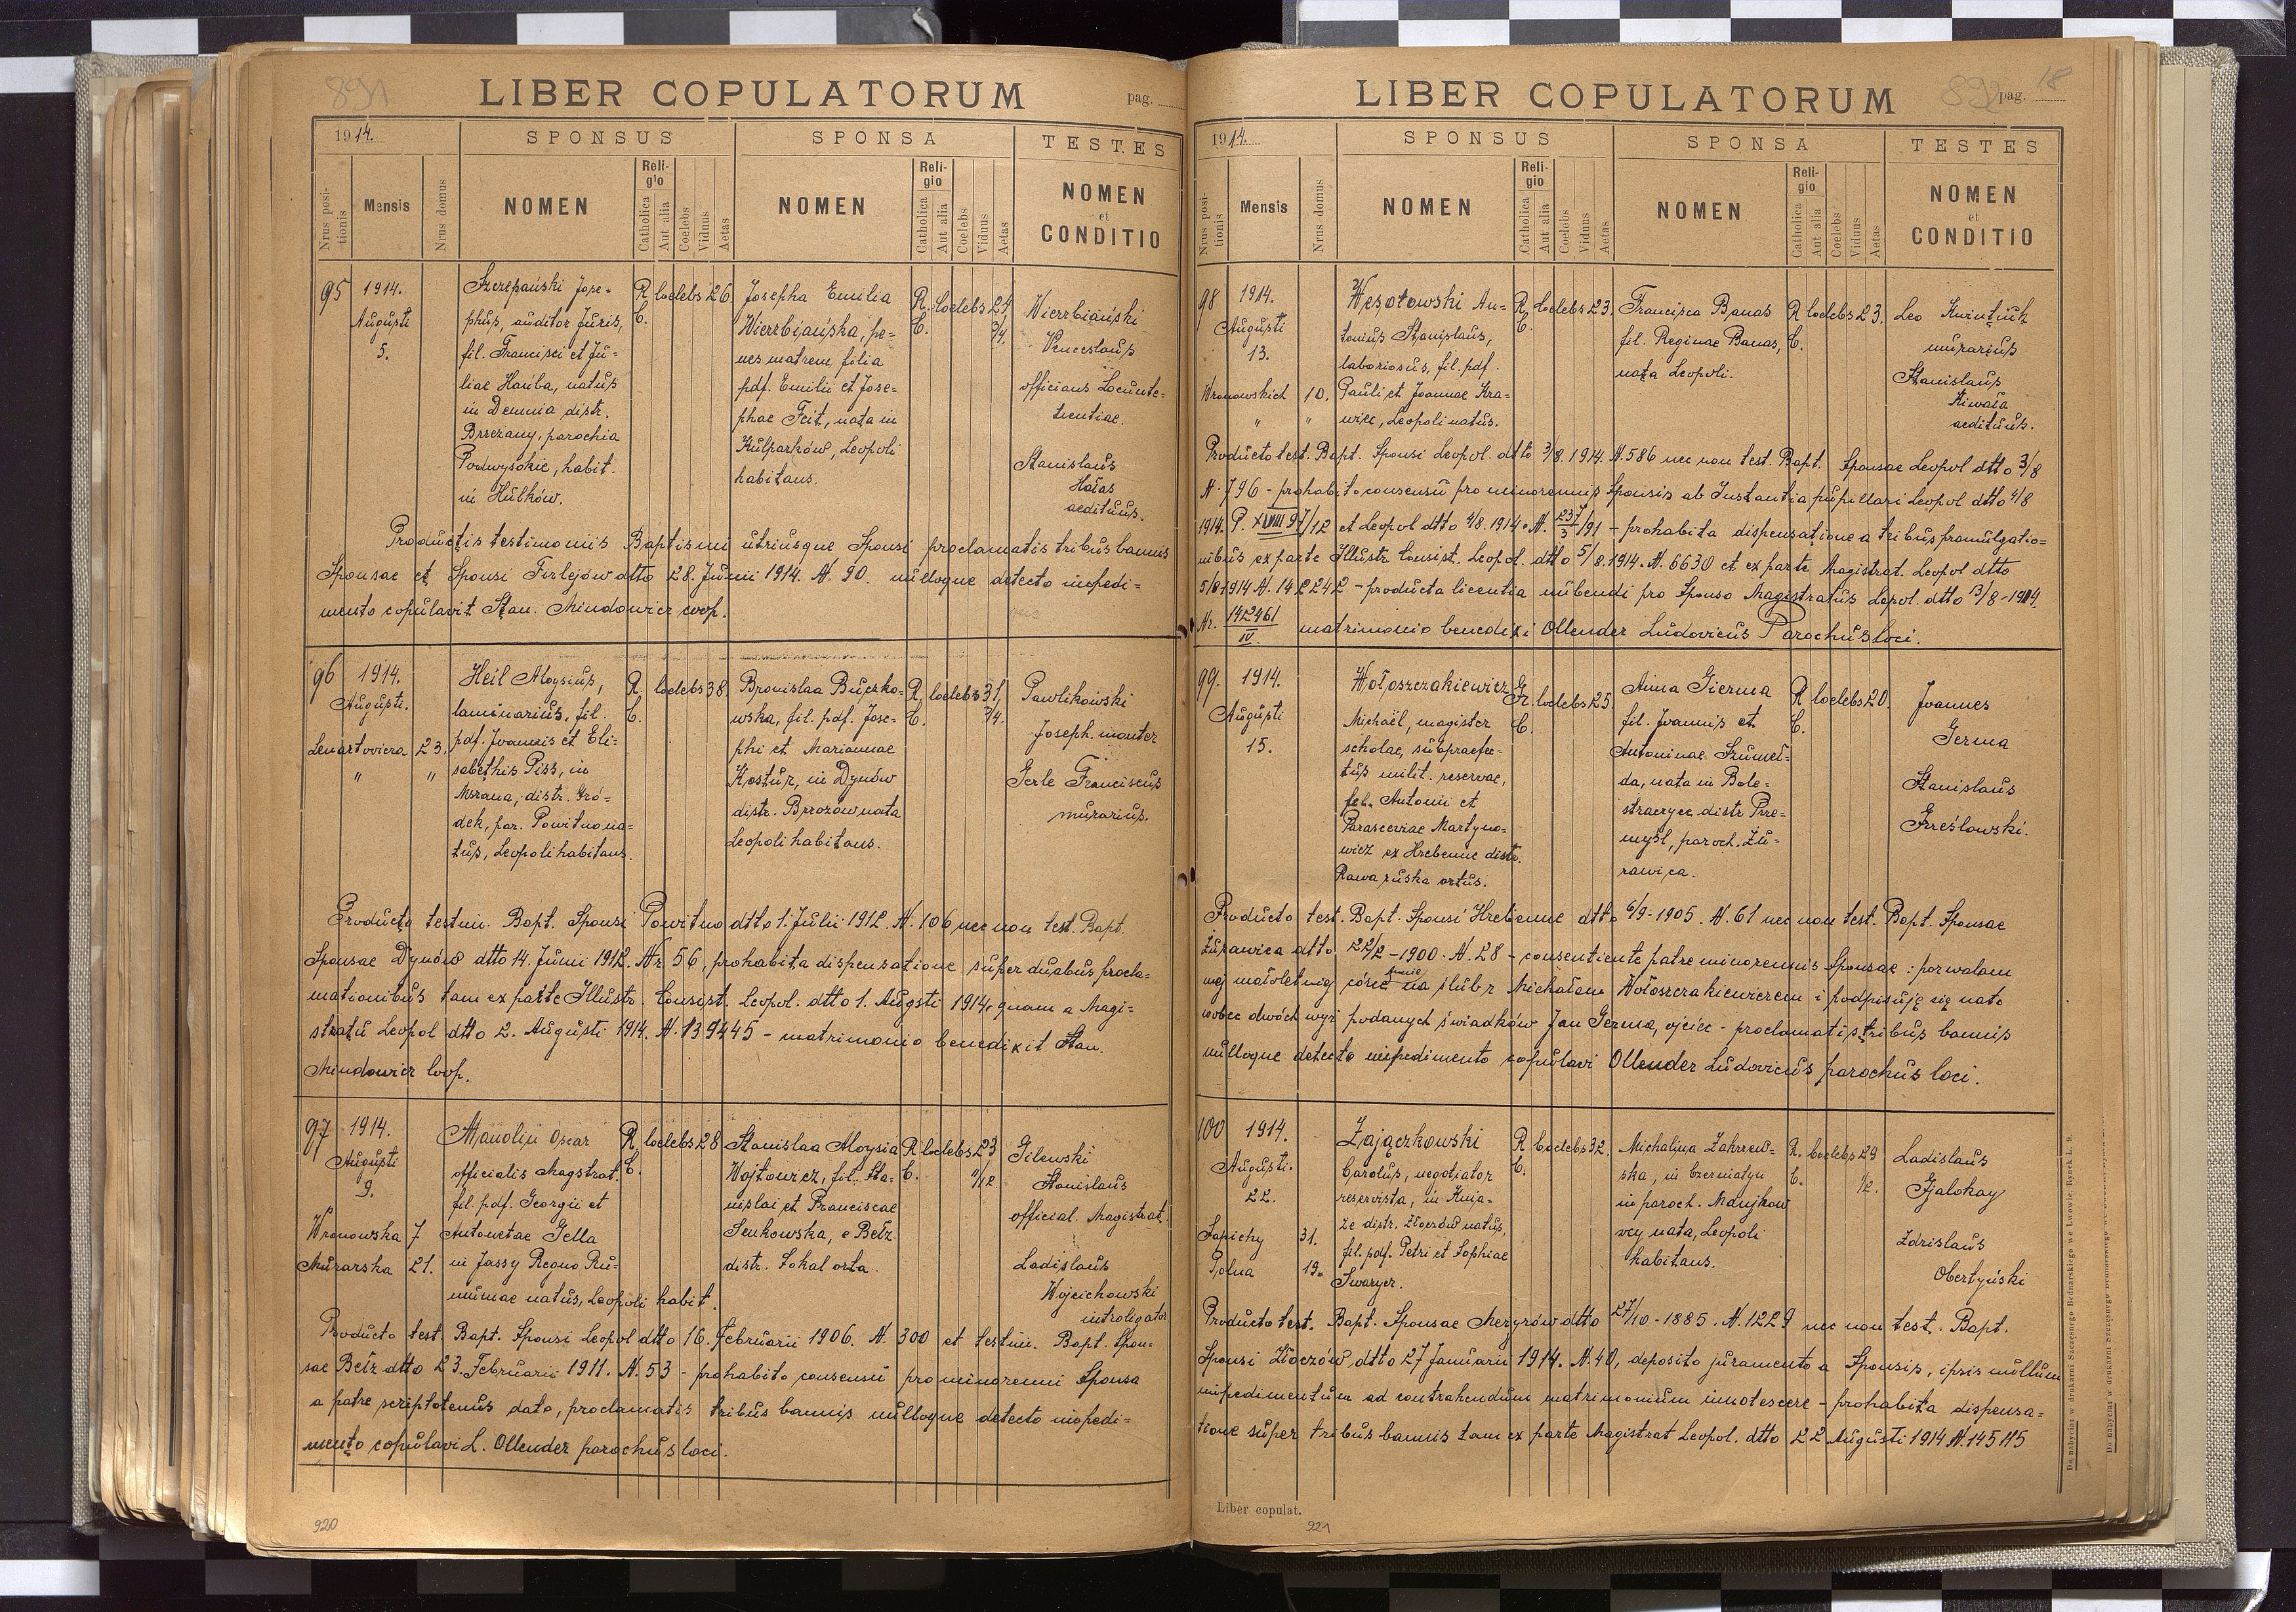 891
LIBER COPULATORUM
pag.
1914.
SPONSUS
SPONSA
TESTES
Nrus positionis
Mensis
Nrus domus
NOMEN
Religio
Catholica
Aut alia
Coelebs
Viduus
Aetas
NOMEN
Religio
Catholica
Aut alia
Coelebs
Viduus
Aetas
NOMEN
et
CONDITIO
95
1914.
Augusti
5.
Szczepański Jose-
phus, auditor Juris,
fil. Francisci et Ju-
liae Hańba, natus
in Demnia distr.
Brzeżany, parochia
Podwysokie, habit.
in Hulków.
R. C.
Coelebs
26.
Josepha Emilia
Wierzbiańska, pe-
nes matrem filia
pdf. Emilii et Jose-
phae Feit, nata in
Kulparków, Leopoli
habitans.
R. C.
Coelebs
24 3/4.
Wierzbiański
Venceslaus
officians Locumte-
nentiae.
Stanislaus
Hałas
aedituus.
Productis testimoniis Baptismi utriusque Sponsi proclamatis tribus bannis
Sponsae et Sponsi Firlejów dtto 28. Junii 1914. N. 90. nulloque detecto impedi-
mento copulavit Stan. Mindowicz coop.
96
1914.
Augusti.
Lenartowicza 23.
" "
Heil Aloysius,
laminarius, fil.
pdf. Joannis et Eli-
sabethis Piss, in
Mszana, distr. Gró-
dek, par. Powitno na-
tus, Leopoli habitans.
R. C.
Coelebs
38
Bronislaa Buczko-
wska, fil. pdf. Jose-
phi et Mariannae
Kostur, in Dynów
distr. Brzozów nata
Leopoli habitans.
R. C.
Coelebs
31 3/4.
Pawlikowski
Joseph. monter
Gerle Franciscus
murarius.
Producto testim. Bapt. Sponsi Powitno dtto 1. Julii 1912. N. 106 nec non test. Bapt.
Sponsae Dynów dtto 14. Junii 1912. Nr. 56, prohabita dispensatione super duabus procla-
mationibus tam ex parte Illustr. Consist. Leopol. dtto 1. Augsti 1914, quam a Magi-
stratu Leopol dtto 2. Augusti 1914. N. 139445 - matrimonio benedixit Stan.
Mindowicz Coop.
97
1914.
Augusti
9.
Wronowska 7
Murarska 21.
Manoliu Oscar
officialis Magstrat.
fil. pdf. Georgii et
Antonetae Gella
in Jassy Regno Ru-
muniae natus, Leopoli habit.
R. C.
Coelebs
28
Stanislaa Aloysia
Wojtowicz, fil. Sta-
nislai et Franciscae
Senkowska, e Bełz
distr. Sokal orta.
R. C.
Coelebs
23 11/12.
Gilewski
Stanislaus
official. Magistrat.
Ladislaus
Wojcichowski
introligator
Producto test. Bapt. Sponsi Leopol dtto 16. Februarii 1906. N. 300 et testim. Bapt. Spon-
sae Bełz dtto 23. Februarii 1911. N. 53 - prohabito consensu pro minorenni Sponsa
a patre scriptotenus dato, proclamatis tribus bannis nulloque detecto impedi-
mento copulavi L. Ollender parochus loci.
920
892
LIBER COPULATORUM
pag. 18
1914.
SPONSUS
SPONSA
TESTES
Nrus positionis
Mensis
Nrus domus
NOMEN
Religio
Catholica
Aut alia
Coelebs
Viduus
Aetas
NOMEN
Religio
Catholica
Aut alia
Coelebs
Viduus
Aetas
NOMEN
et
CONDITIO
98
1914.
Augusti
13.
Wronowskich 10.
" "
Wesołowski An-
tonius Stanislaus,
laboriosus, fil. pdf.
Pauli et Joannae Kra-
wiec, Leopoli natus.
R. C.
Coelebs
23.
Francisca Banas
fil. Reginae Banas,
nata Leopoli.
R. C.
Coelebs
23.
Leo Kwintiuk
murarius
Stanislaus
Kiwała
aedituus.
Producto test. Bapt. Sponsi Leopol. dtto 3/8. 1914. N. 586 nec non test. Bapt. Sponsae Leopol dtto 3/8
N. 796 - prohabito consensu pro minorennis Sponsis ab Instantia pupillari Leopol dtto 4/8
1914. P. XVIII 97/12 et Leopol dtto 4/8. 1914. N. 237/5/91 - prohabita dispensatione a tribus promulgatio-
nibus ex parte Illustr. Consist. Leopol. dtto 5/8. 1914. N. 6630 et ex parte Magistrat. Leopol dtto
5/8 1914 N. 142242 - producta licentia nubendi pro Sponso Magistratus Lepol. dtto 13/8 - 1914.
Nr. 142461/IV. matrimonio benedixi Ollender Ludovicus Parochus loci.
99.
1914.
Augusti
15.
Wołoszczakiewicz
Michaël, magister
scholae, subpraefec-
tus milit. reservae,
fil. Antonii et
Parasceviae Martyno-
wicz ex Hrebenne distr.
Rawa ruska ortus.
Gr. C.
Coelebs
25.
Anna Gierma
fil. Joannis et
Antoninae Szumeł-
da, nata in Bole-
straszyce distr. Prze-
myśl, paroch. Żu-
rawica.
R. C.
Coelebs
20.
Joannes
Germa
Stanislaus
Grześlowski.
Producto test. Bapt. Sponsi Hrebenne dtto 6/9 - 1905. N. 61 nec non test. Bapt. Sponsae
Żurawica dtto 22/2 - 1900. N. 28 - consentiente patre minorennis Sponsae: pozwalam
mej małoletniej córce na ślub z Michałem Wołoszczakiewiczem i podpisuję się na to
wobec dwóch wyż podanych świadków Jan Germa, ojciec - proclamatis tribus bannis
nulloque detecto impedimento copulavi Ollender Ludovicus parochus loci.
100
1914.
Augusti.
22.
Sapiehy 31.
Polna 19.
Zajączkowski
Carolus, negotiator
reservista, in Knia-
że distr. Złoczów natus,
fil. pdf. Petri et Sophiae
Swaryez.
R. C.
Coelebs
32.
Michalina Zakrzew-
ska, in Czerniatyn
in paroch. Marijkow
cey nata, Leopoli
habitans.
R. C.
Coelebs
29 1/2.
Ladislaus
Gjalokay
Zdzislaus
Obertyński
Producto test. Bapt. Sponsae Mezyrów dtto 27/10 - 1885. N. 1229 nec non test. Bapt.
Sponsi Złoczów dtto 27 Januarii 1914. N. 40, deposito juramento a Sponsis, ipsis nullum
impedimentum ad contrahendum matrimonium innotescere - prohabita dispensa-
tione super tribus bannis tam ex parte Magistrat Leopol. dtto 22 Augusti 1914 N. 145115
Liber copulat.
921
Do nabycia w drukarni Szczęsnego Bednarskiego we Lwowie, Rynek L. 9.